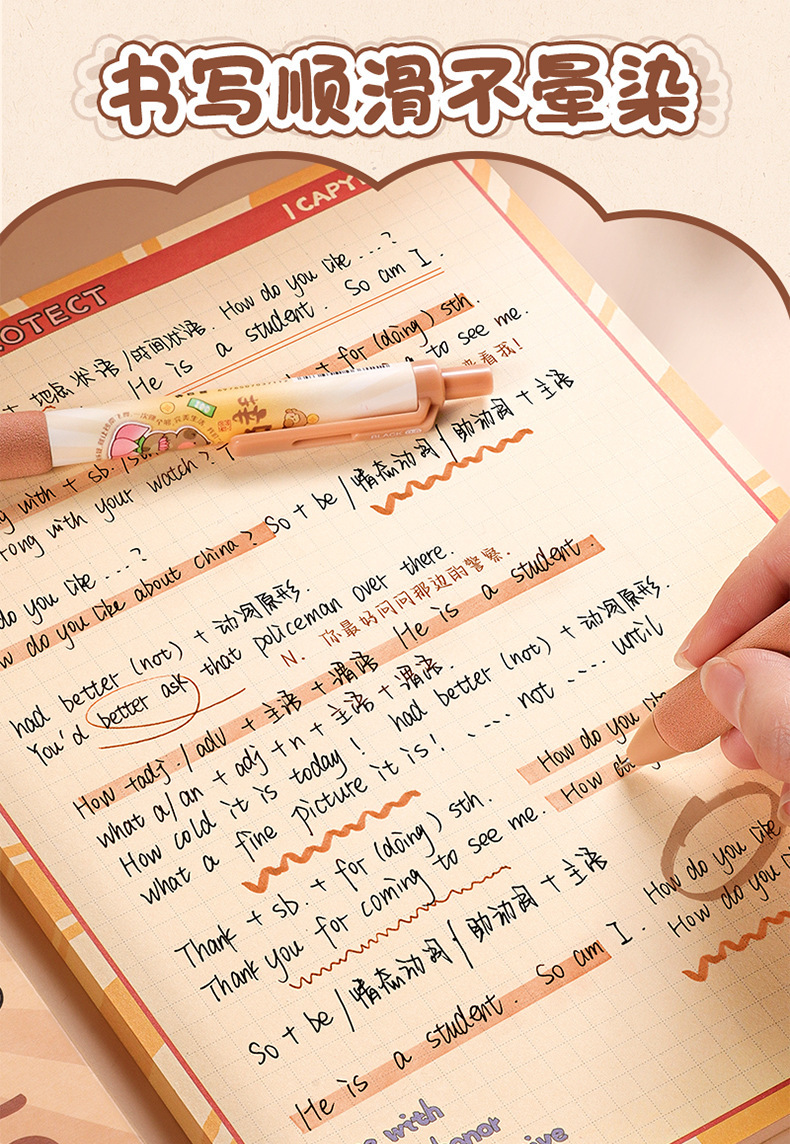 书写顺滑不晕染
I CAPY
OTECT
How do you like ...?
地点状语/时间状语. He is a student. So am I.
+ for (doing) sth.
g to see me.
来看我!
BLACK
g with + sb.
rong with your watch?
So + be / 情态动词 / 助动词 + 主语
do you like ...?
w do you like about china?
had better (not) + 动词原形.
You'd better ask that policeman over there.
N. 你最好问问那边的警察.
He is a student.
How +adj. / adv + 主语 + 谓语
what a/an + adj + n + 主语 + 谓语.
had better (not) + 动词原形.
How cold it is today!
.... not .... until
what a fine picture it is!
How do you like
How do
Thank + sb. + for (doing) sth.
Thank you for coming to see me.
How do you like
How do you li
So + be / 情态动词 / 助动词 + 主语
He is a student. So am I.
with
onor
ive